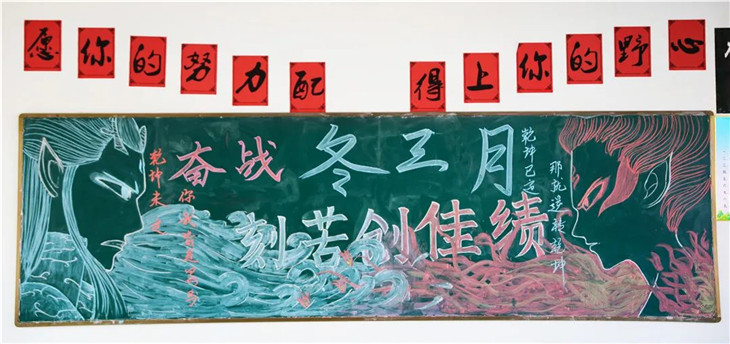 愿你的努力配得上你的野心
奋战冬三月
刻苦创佳绩
乾坤未定
你我皆是黑马
乾坤已定
那就逆转乾坤